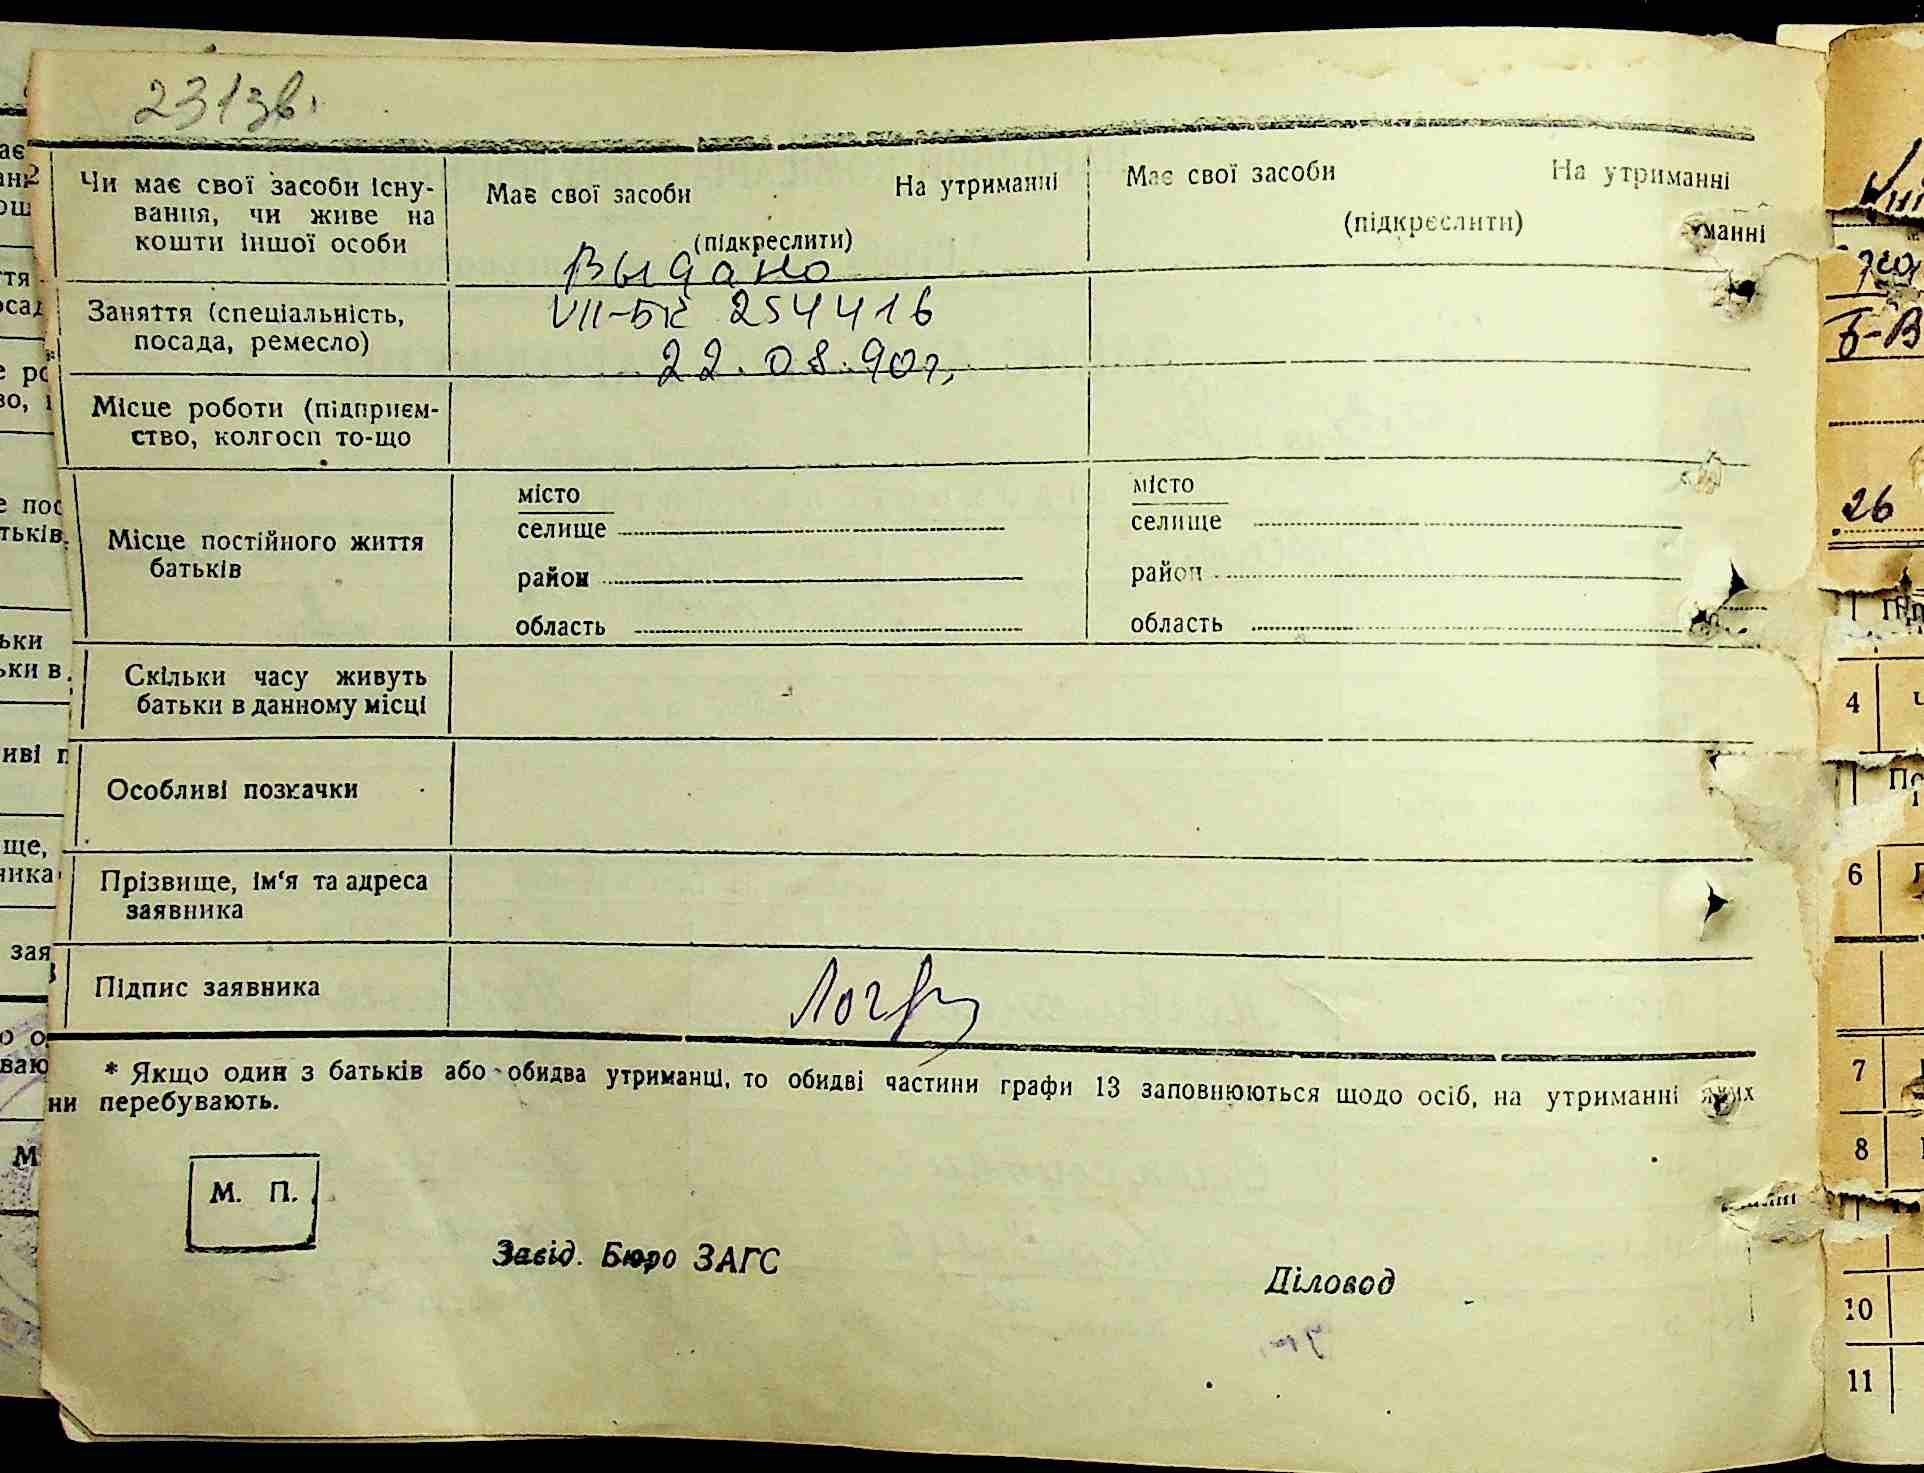 231зв.
Чи має свої засоби існу-
вання, чи живе на
кошти іншої особи
Має свої засоби На утриманні
(підкреслити)
Має свої засоби На утриманні
(підкреслити)
манні
Выдано
Заняття (спеціальність,
посада, ремесло)
VII-БК 254416
22.08.90г.
Місце роботи (підприєм-
ство, колгосп то-що
Місце постійного життя
батьків
місто
селище
район
область
місто
селище
район
область
Скільки часу живуть
батьки в данному місці
Особливі позначки
Прізвище, ім'я та адреса
заявника
Підпис заявника
* Якщо один з батьків або обидва утриманці, то обидві частини графи 13 заповнюються щодо осіб, на утриманні яких
ни перебувають.
М. П.
Завід. Бюро ЗАГС
Діловод
26
4
6
7
8
10
11